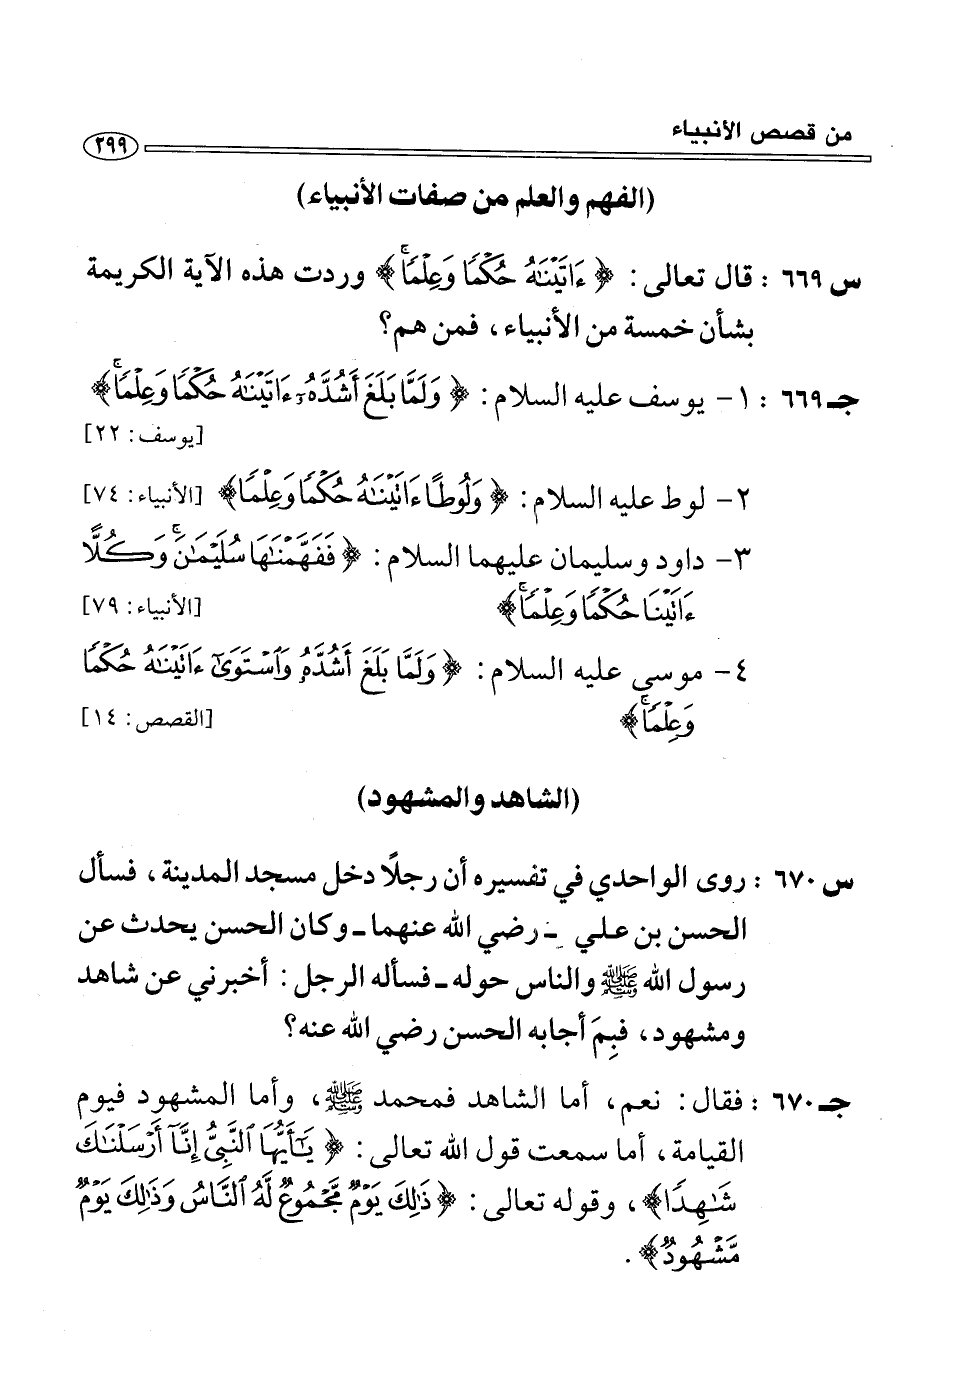 من قصص الأنبياء
٢٩٩
(الفهم والعلم من صفات الأنبياء)
س ٦٦٩ : قال تعالى : ﴿ ءَاتَيْنَٰهُ حُكْمًا وَعِلْمًاۚ ﴾ وردت هذه الآية الكريمة
بشأن خمسة من الأنبياء ، فمن هم؟
جـ ٦٦٩ : ١- يوسف عليه السلام : ﴿ وَلَمَّا بَلَغَ أَشُدَّهُۥٓ ءَاتَيْنَٰهُ حُكْمًا وَعِلْمًاۚ ﴾
[يوسف : ٢٢]
٢- لوط عليه السلام : ﴿ وَلُوطًا ءَاتَيْنَٰهُ حُكْمًا وَعِلْمًا ﴾ [الأنبياء : ٧٤]
٣- داود وسليمان عليهما السلام : ﴿ فَفَهَّمْنَٰهَا سُلَيْمَٰنَۚ وَكُلًّا
ءَاتَيْنَا حُكْمًا وَعِلْمًاۚ ﴾ [الأنبياء : ٧٩]
٤- موسى عليه السلام : ﴿ وَلَمَّا بَلَغَ أَشُدَّهُۥ وَٱسْتَوَىٰٓ ءَاتَيْنَٰهُ حُكْمًا
وَعِلْمًاۚ ﴾ [القصص : ١٤]
(الشاهد والمشهود)
س ٦٧٠ : روى الواحدي في تفسيره أن رجلًا دخل مسجد المدينة ، فسأل
الحسن بن علي ـ رضي الله عنهما ـ وكان الحسن يحدث عن
رسول الله ﷺ والناس حوله ـ فسأله الرجل : أخبرني عن شاهد
ومشهود ، فبِمَ أجابه الحسن رضي الله عنه؟
جـ ٦٧٠ : فقال : نعم ، أما الشاهد فمحمد ﷺ ، وأما المشهود فيوم
القيامة ، أما سمعت قول الله تعالى : ﴿ يَٰٓأَيُّهَا ٱلنَّبِىُّ إِنَّآ أَرْسَلْنَٰكَ
شَٰهِدًا ﴾ ، وقوله تعالى : ﴿ ذَٰلِكَ يَوْمٌ مَّجْمُوعٌ لَّهُ ٱلنَّاسُ وَذَٰلِكَ يَوْمٌ
مَّشْهُودٌ ﴾ .